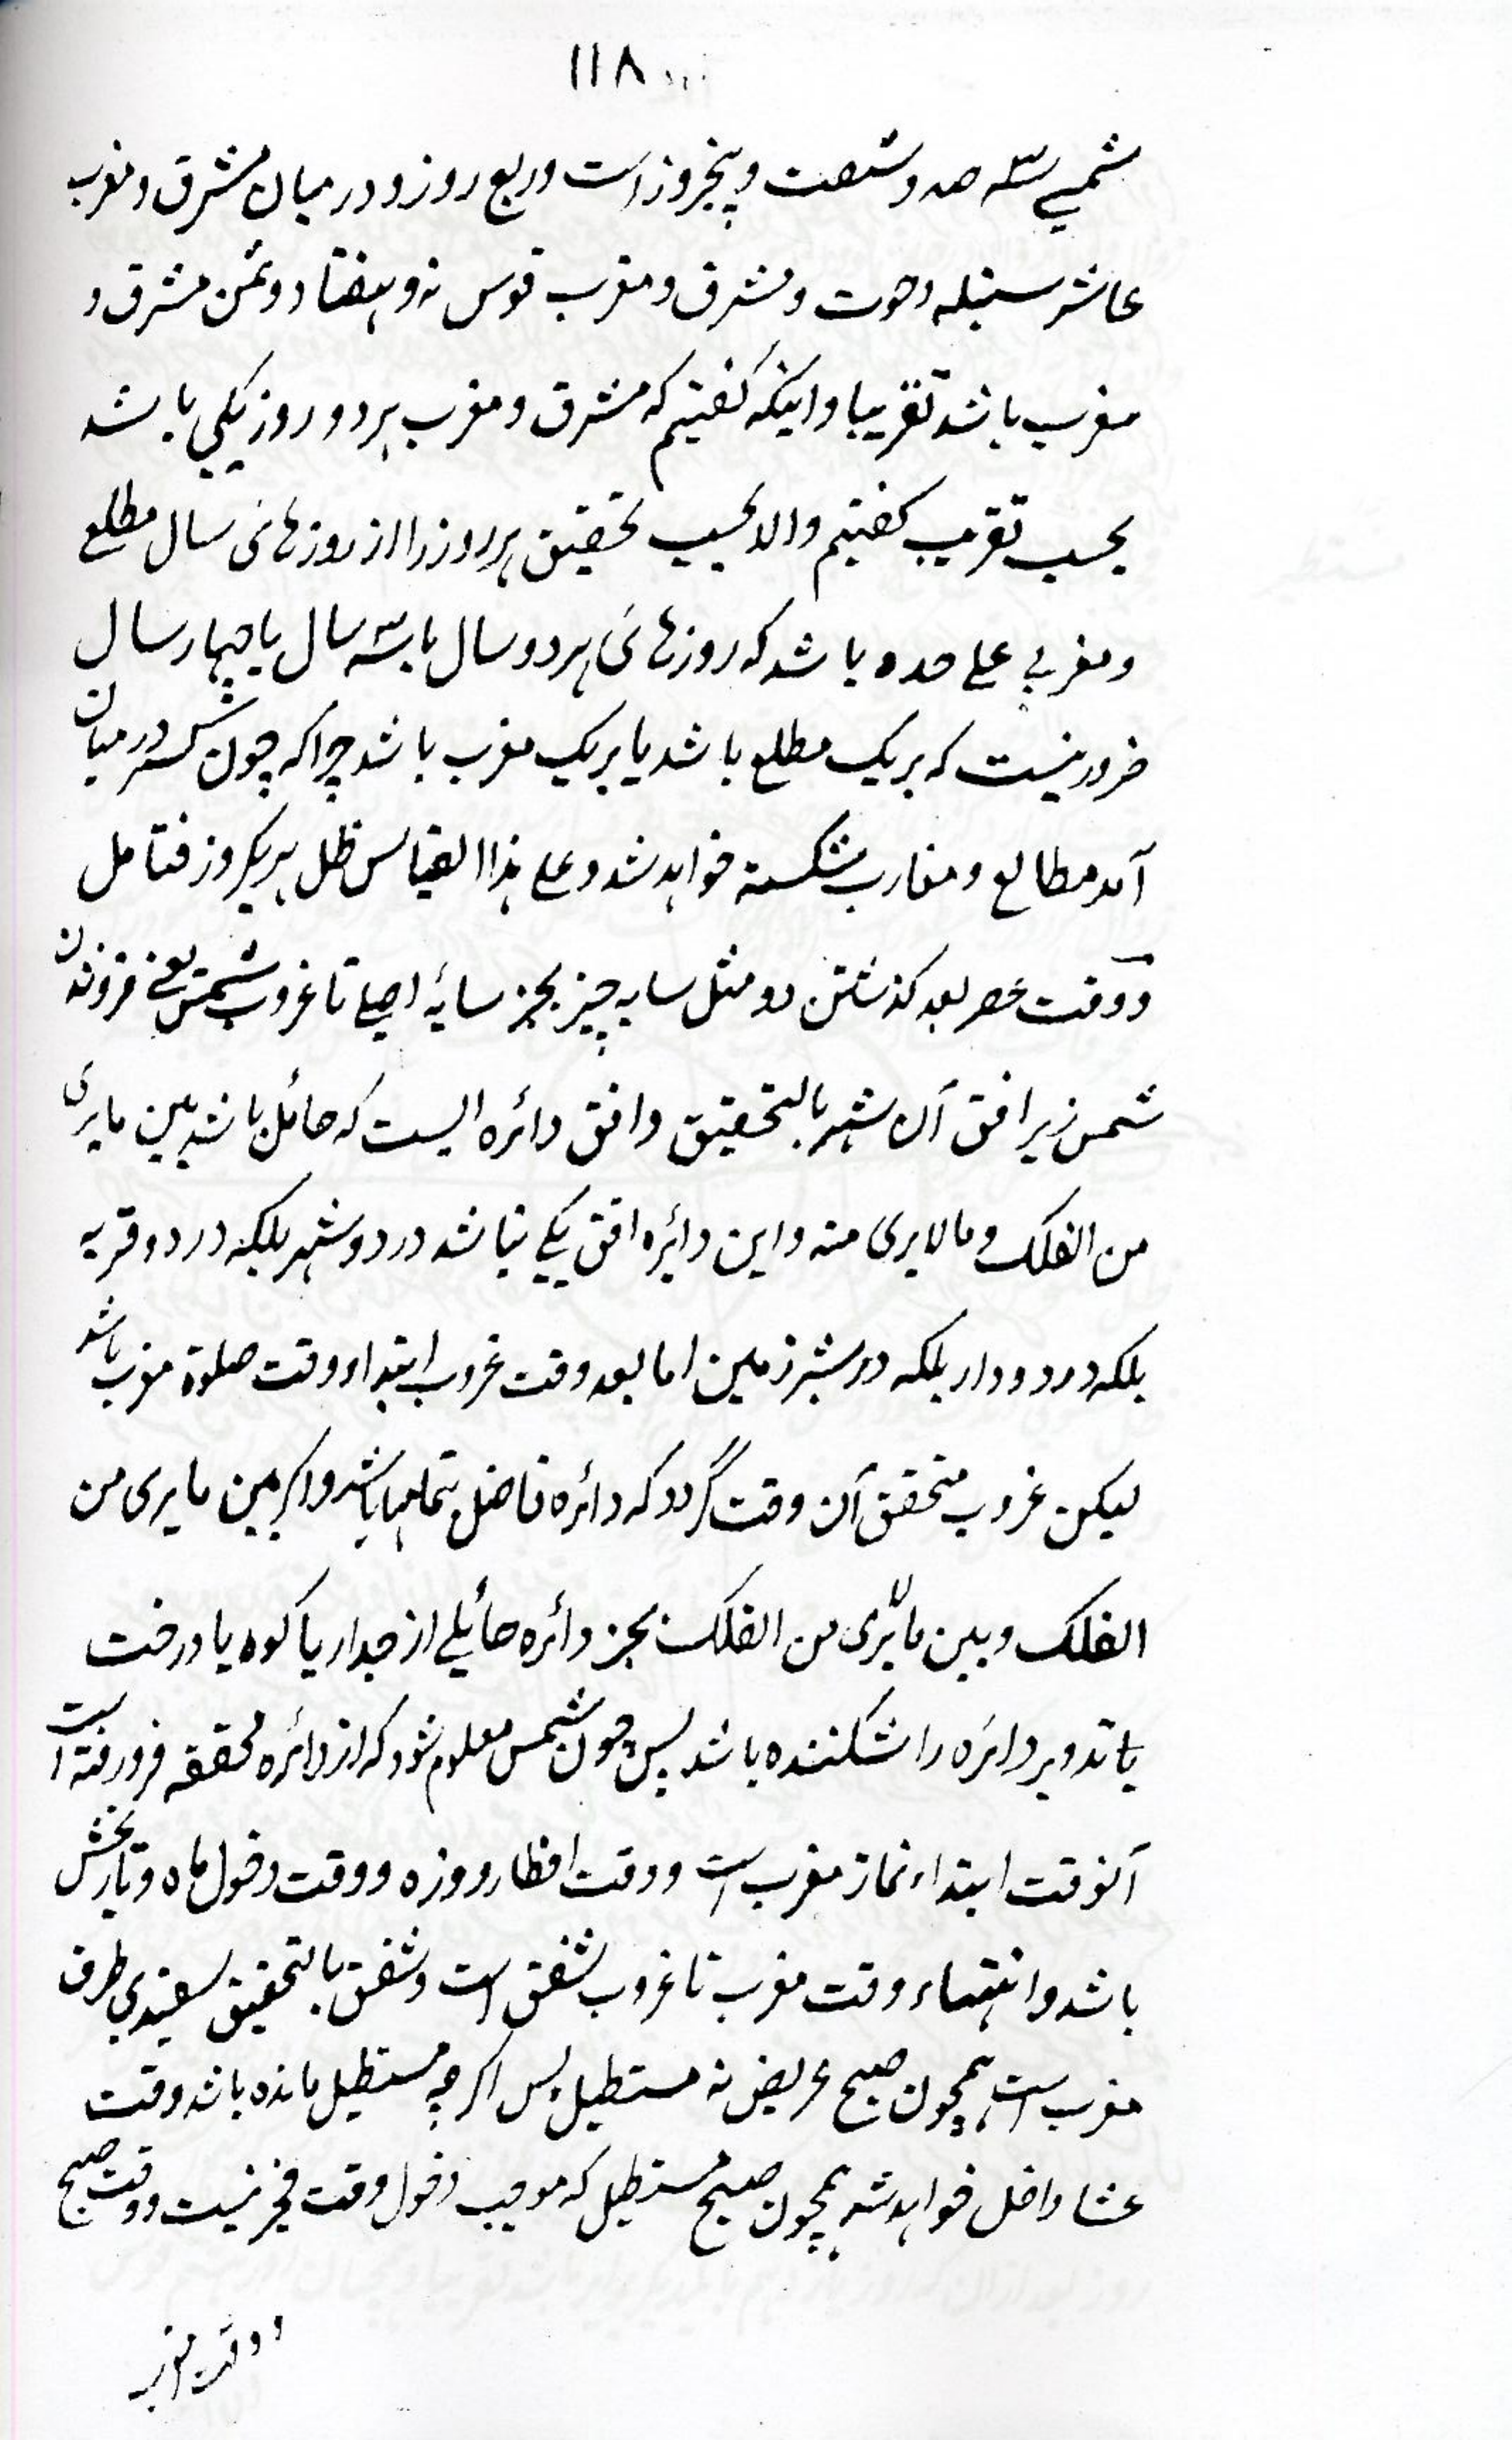 ١١٨
شمسے سه صد و شصت و پنجروز است و ربع روز و درمیان مشرق و مغرب
عاشر سنبله و حوت و مشرق و مغرب قوس نه و هفتاد و ثمن مشرق و
مغرب باشد تقریبا و اینکه گفتیم که مشرق و مغرب هر دو روز یکی باشد
بحسب تقریب گفتیم والا بحسب تحقیق هر روز را از روزهائ سال مطلع
و مغربے علے حده باشد که روزهائ هر دو سال یا سه سال یا چهار سال
ضرور نیست که بر یک مطلع باشد یا بر یک مغرب باشد چرا که چون کسر درمیان
آمد مطالع و مغارب شکسته خواهد شد و علے هذا القیاس ظل هر یکروز فتامل
و وقت عصر بعد گذشتن دو مثل سایه چیز بجز سایۀ اصلے تا غروب شمس یعنے فرو شدن
شمس زیر افق آن شهر بالتحقیق و افق دائره ایست که حائل باشد بین ما یری
من الفلک و ما لا یری منه و این دائره افق یکے نباشد در دو شهر بلکه در دو قریه
بلکه در دو دار بلکه دو شبر زمین اما بعد وقت غروب ابتداء وقت صلوة مغرب باشد
لیکن غروب متحقق آن وقت گردد که دائره فاضل بتمامها باشد و اگر بین ما یری من
الفلک و بین ما لا یری من الفلک بجز دائره حائلے از جدار یا کوه یا درخت
یا تدویر دائره را شکننده باشد پس چون شمس معلوم شود که از دائره محققه فرو رفته است
آنوقت ابتداء نماز مغرب است و وقت افطار روزه و وقت دخول ماه و تاریخش
باشد و انتهاء وقت مغرب تا غروب شفق است و شفق بالتحقیق سفیدی طرف
مغرب است همچون صبح عریض نه مستطیل پس اگرچه مستطیل مانده باشد وقت
عشا داخل خواهد شد همچون صبح مستطیل که موجب دخول وقت فجر نیست و وقت صبح